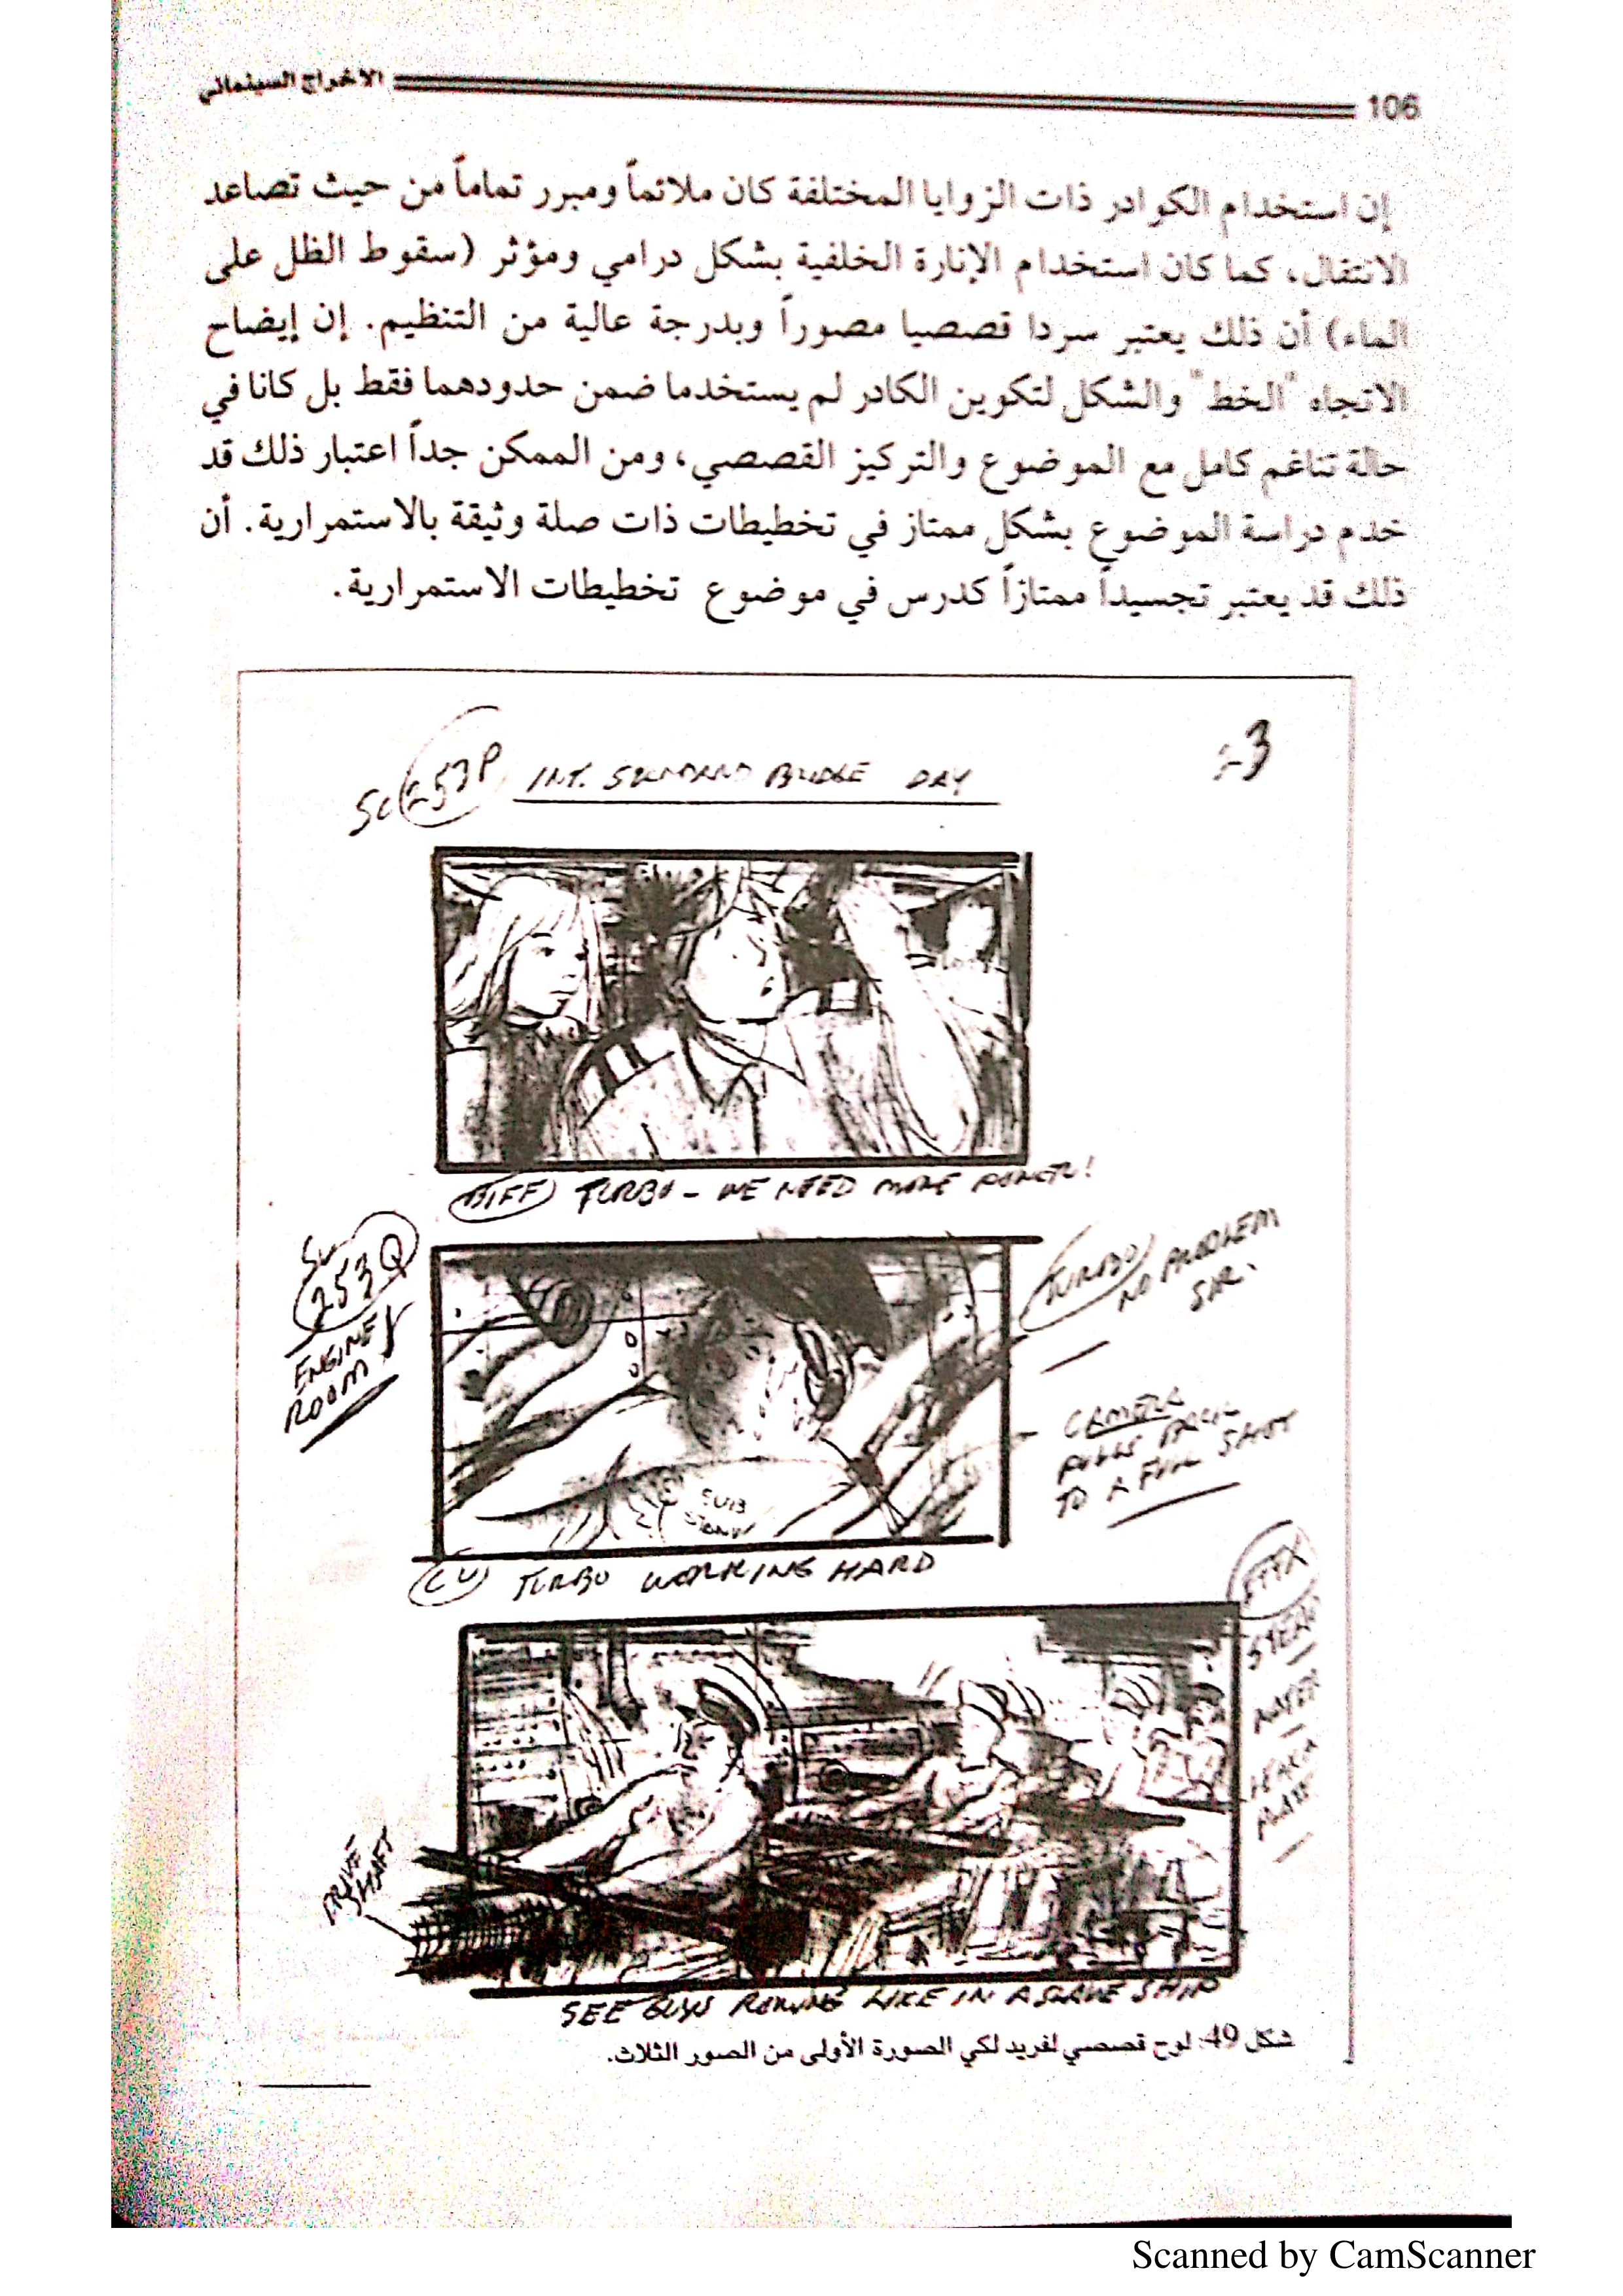 106
الاخراج السينمائي
إن استخدام الكوادر ذات الزوايا المختلفة كان ملائماً ومبرر تماماً من حيث تصاعد
الانتقال، كما كان استخدام الإنارة الخلفية بشكل درامي ومؤثر (سقوط الظل على
الماء) أن ذلك يعتبر سردا قصصيا مصوراً وبدرجة عالية من التنظيم. إن إيضاح
الاتجاه "الخط" والشكل لتكوين الكادر لم يستخدما ضمن حدودهما فقط بل كانا في
حالة تناغم كامل مع الموضوع والتركيز القصصي، ومن الممكن جداً اعتبار ذلك قد
خدم دراسة الموضوع بشكل ممتاز في تخطيطات ذات صلة وثيقة بالاستمرارية. أن
ذلك قد يعتبر تجسيداً ممتازاً كدرس في موضوع تخطيطات الاستمرارية.
SC 253P INT. BRIDGE DAY
BIFF TURBO - WE NEED MORE POWER!
SC
253Q
ENGINE
ROOM
TURBO
NO PROBLEM
SIR.
CAMERA
PULLS BACK
TO A FULL SHOT
SUB
CU TURBO WORKING HARD
EFFX
STEAM
WATER
DRIVE
SHAFT
SEE GUYS ROWING LIKE IN A SLAVE SHIP
شكل 49: لوح قصصي لفريد لكي الصورة الأولى من الصور الثلاث.
Scanned by CamScanner